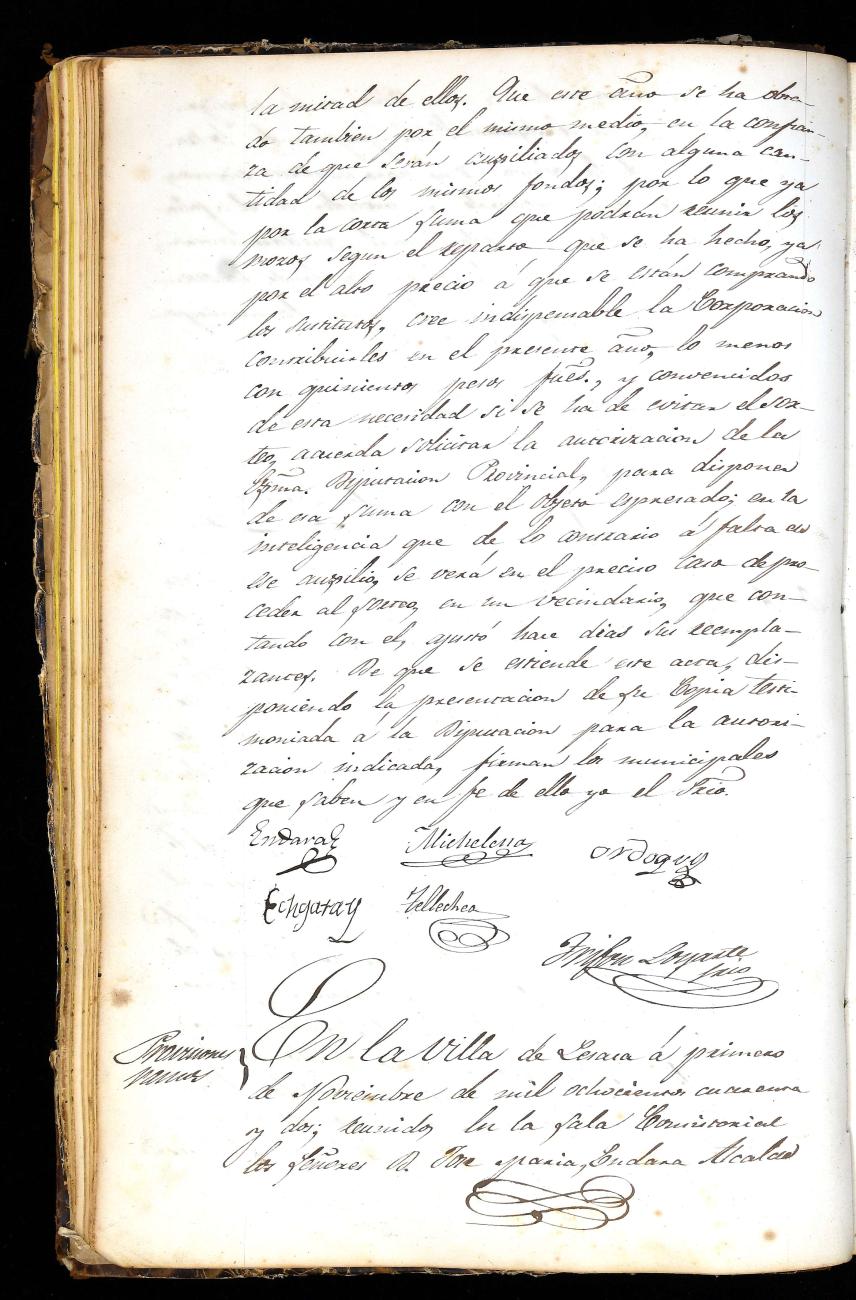 la mitad de ellos. Que este año se ha obra-
do tambien por el mismo medio, en la confian-
za de que serán auxiliados con alguna can-
tidad de los mismos fondos; por lo que ya
por la corta suma que podrán reunir los
mozos segun el reparto que se ha hecho, ya
por el alto precio á que se están comprando
los sustitutos, cree indispensable la Corporacion
contribuirles en el presente año, lo menos
con quinientos pesos fues., y convencidos
de esta necesidad si se ha de evitar el sor-
teo, acuerda solicitar la autorizacion de la
Exma. Diputacion Provincial, para disponer
de esa suma con el objeto espresado; en la
inteligencia que de lo contrario á falta de
ese auxilio, se verá en el preciso caso de pro-
ceder al sorteo, en un vecindario, que con-
tando con el, ajustó hace dias sus reempla-
zantes. De que se estiende este acta, dis-
poniendo la presentacion de su Copia testi-
moniada á la Diputacion para la autori-
zacion indicada, firman los municipales
que saben y en fe de ello yo el Srio.
Endara Michelena Ordoquy
Echgaray Tellechea
Loyarte
Srio
Provisiones
varias
En la Villa de Lesaca á primero
de Noviembre de mil ochocientos cuarenta
y dos; reunidos en la sala Consistorial
los Señores D. Jose Maria Endara Alcalde